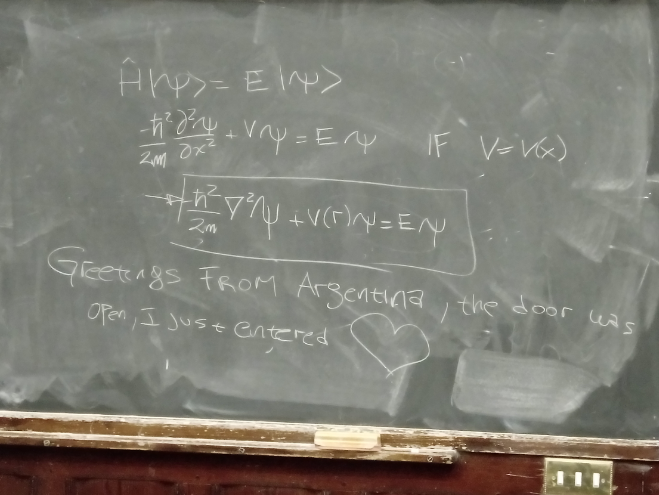 Ĥ|ψ> = E|ψ>
-ħ²/2m ∂²ψ/∂x² + Vψ = Eψ IF V=V(x)
-ħ²/2m ∇²ψ + V(r)ψ = Eψ
Greetings From Argentina, the door was
open, I just entered